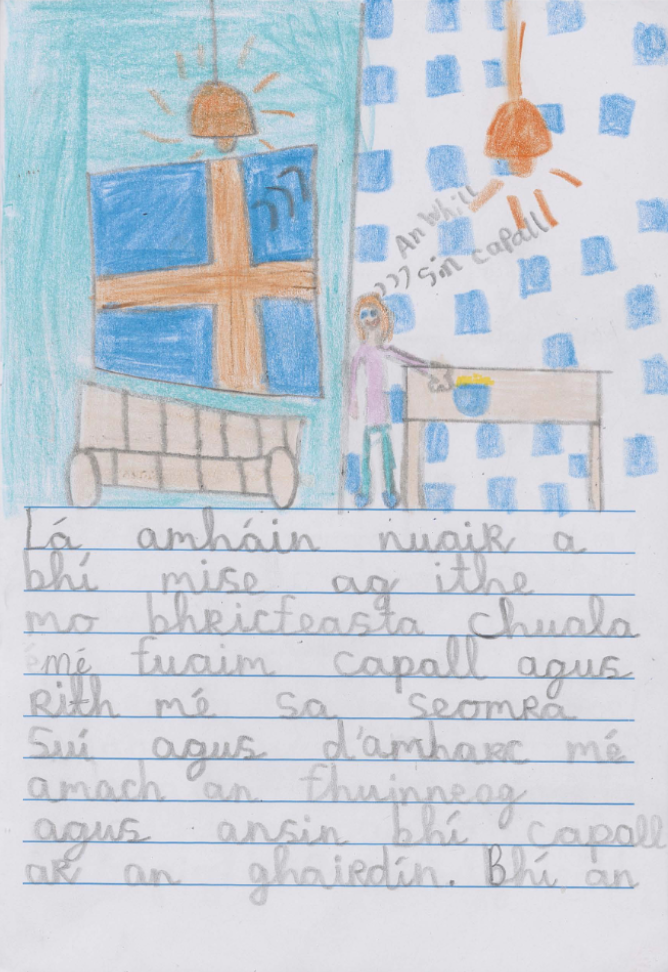 An Whill
sin capall
Lá amháin nuair a
bhí mise ag ithe
mo bhricfeasta chuala
mé fuaim capall agus
Rith mé sa seomra
Suí agus d'amharc mé
amach an fhuinneog
agus ansin bhí capall
ar an ghairdín. Bhí an